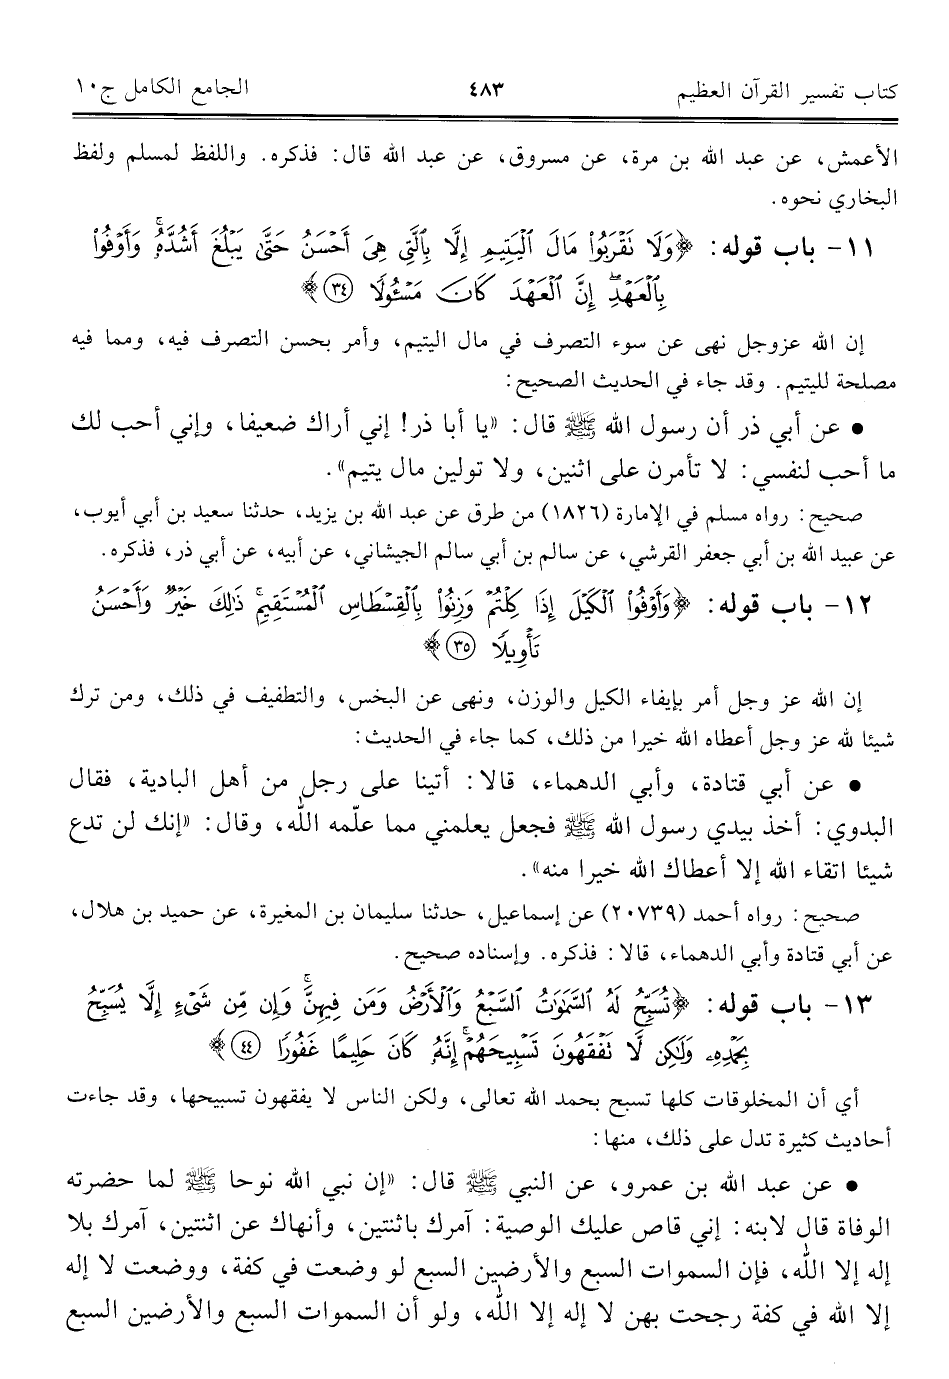 كتاب تفسير القرآن العظيم ٤٨٣ الجامع الكامل ج١٠
الأعمش، عن عبد الله بن مرة، عن مسروق، عن عبد الله قال: فذكره. واللفظ لمسلم ولفظ
البخاري نحوه.
١١- باب قوله: ﴿وَلَا نَقْرَبُوا۟ مَالَ ٱلْيَتِيمِ إِلَّا بِٱلَّتِى هِىَ أَحْسَنُ حَتَّىٰ يَبْلُغَ أَشُدَّهُۥ ۚ وَأَوْفُوا۟
بِٱلْعَهْدِ ۖ إِنَّ ٱلْعَهْدَ كَانَ مَسْـُٔولًا ٣٤﴾
إن الله عزوجل نهى عن سوء التصرف في مال اليتيم، وأمر بحسن التصرف فيه، ومما فيه
مصلحة لليتيم. وقد جاء في الحديث الصحيح:
• عن أبي ذر أن رسول الله ﷺ قال: «يا أبا ذر! إني أراك ضعيفا، وإني أحب لك
ما أحب لنفسي: لا تأمرن على اثنين، ولا تولين مال يتيم».
صحيح: رواه مسلم في الإمارة (١٨٢٦) من طرق عن عبد الله بن يزيد، حدثنا سعيد بن أبي أيوب،
عن عبيد الله بن أبي جعفر القرشي، عن سالم بن أبي سالم الجيشاني، عن أبيه، عن أبي ذر، فذكره.
١٢- باب قوله: ﴿وَأَوْفُوا۟ ٱلْكَيْلَ إِذَا كِلْتُمْ وَزِنُوا۟ بِٱلْقِسْطَاسِ ٱلْمُسْتَقِيمِ ۚ ذَٰلِكَ خَيْرٌ وَأَحْسَنُ
تَأْوِيلًا ٣٥﴾
إن الله عز وجل أمر بإيفاء الكيل والوزن، ونهى عن البخس، والتطفيف في ذلك، ومن ترك
شيئا لله عز وجل أعطاه الله خيرا من ذلك، كما جاء في الحديث:
• عن أبي قتادة، وأبي الدهماء، قالا: أتينا على رجل من أهل البادية، فقال
البدوي: أخذ بيدي رسول الله ﷺ فجعل يعلمني مما علّمه الله، وقال: «إنك لن تدع
شيئا اتقاء الله إلا أعطاك الله خيرا منه».
صحيح: رواه أحمد (٢٠٧٣٩) عن إسماعيل، حدثنا سليمان بن المغيرة، عن حميد بن هلال،
عن أبي قتادة وأبي الدهماء، قالا: فذكره. وإسناده صحيح.
١٣- باب قوله: ﴿تُسَبِّحُ لَهُ ٱلسَّمَٰوَٰتُ ٱلسَّبْعُ وَٱلْأَرْضُ وَمَن فِيهِنَّ ۚ وَإِن مِّن شَىْءٍ إِلَّا يُسَبِّحُ
بِحَمْدِهِۦ وَلَٰكِن لَّا تَفْقَهُونَ تَسْبِيحَهُمْ ۗ إِنَّهُۥ كَانَ حَلِيمًا غَفُورًا ٤٤﴾
أي أن المخلوقات كلها تسبح بحمد الله تعالى، ولكن الناس لا يفقهون تسبيحها، وقد جاءت
أحاديث كثيرة تدل على ذلك، منها:
• عن عبد الله بن عمرو، عن النبي ﷺ قال: «إن نبي الله نوحا ﷺ لما حضرته
الوفاة قال لابنه: إني قاص عليك الوصية: آمرك باثنتين، وأنهاك عن اثنتين، آمرك بلا
إله إلا الله، فإن السموات السبع والأرضين السبع لو وضعت في كفة، ووضعت لا إله
إلا الله في كفة رجحت بهن لا إله إلا الله، ولو أن السموات السبع والأرضين السبع